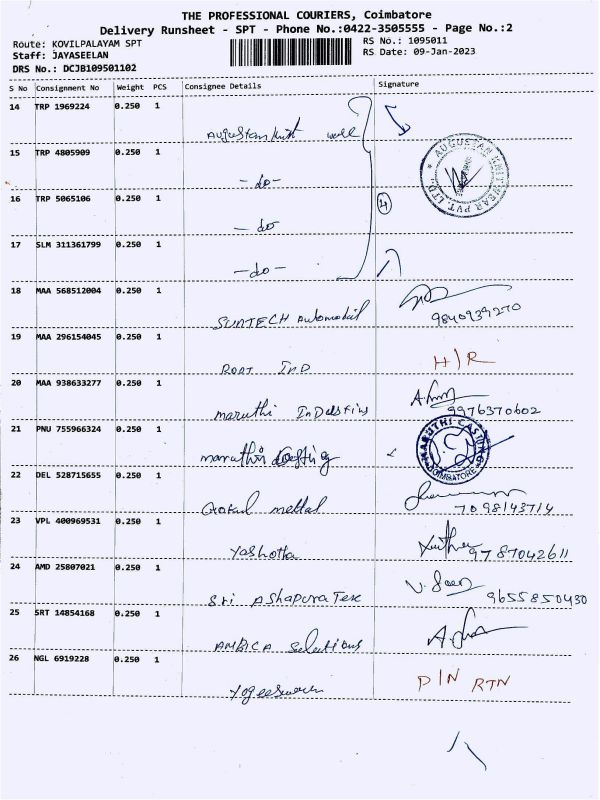 THE PROFESSIONAL COURIERS, Coimbatore
Delivery Runsheet - SPT - Phone No.:0422-3505555 - Page No.:2
Route: KOVILPALAYAM SPT
RS No.: 1095011
Staff: JAYASEELAN
RS Date: 09-Jan-2023
DRS No.: DCJB109501102
S No Consignment No Weight PCS Consignee Details Signature
14 TRP 1969224 0.250 1
Augustan Knit
15 TRP 4805909 0.250 1
-do-
AUGUSTAN KNITWEAR PVT. LTD
16 TRP 5065106 0.250 1
4
- do
17 SLM 311361799 0.250 1
-do-
18 MAA 568512004 0.250 1
SUNTECH Automobil 9840939270
19 MAA 296154045 0.250 1
ROOT IND H/R
20 MAA 938633277 0.250 1
maruthi 9976370602
21 PNU 755966324 0.250 1
maruthi MARUTHI CASTING COIMBATORE
22 DEL 528715655 0.250 1
Gokul mettal 7098143714
23 VPL 400969531 0.250 1
Yashotha 9787042611
24 AMD 25807021 0.250 1
Sri AShapura Tex 9655850430
25 SRT 14854168 0.250 1
AMBICA Selutions
26 NGL 6919228 0.250 1
P/N RTN